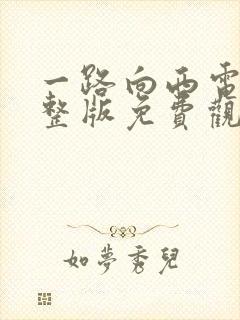 一路向西電
整版免費觀
如夢秀兒